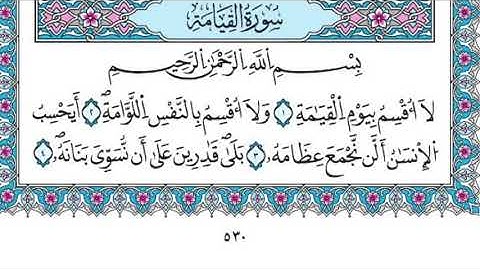 سُورَةُ القِيَامَةِ
بِسْمِ اللَّهِ الرَّحْمَٰنِ الرَّحِيمِ
لَآ أُقْسِمُ بِيَوْمِ الْقِيَٰمَةِ ١ وَلَآ أُقْسِمُ بِالنَّفْسِ اللَّوَّامَةِ ٢ أَيَحْسَبُ
الْإِنسَٰنُ أَلَّن نَّجْمَعَ عِظَامَهُۥ ٣ بَلَىٰ قَٰدِرِينَ عَلَىٰٓ أَن نُّسَوِّيَ بَنَانَهُۥ ٤
٥٣٠